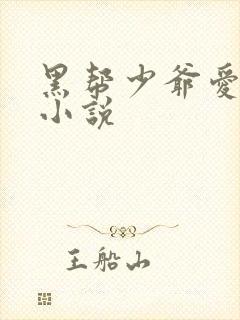 黑帮少爷愛
小説
王船山